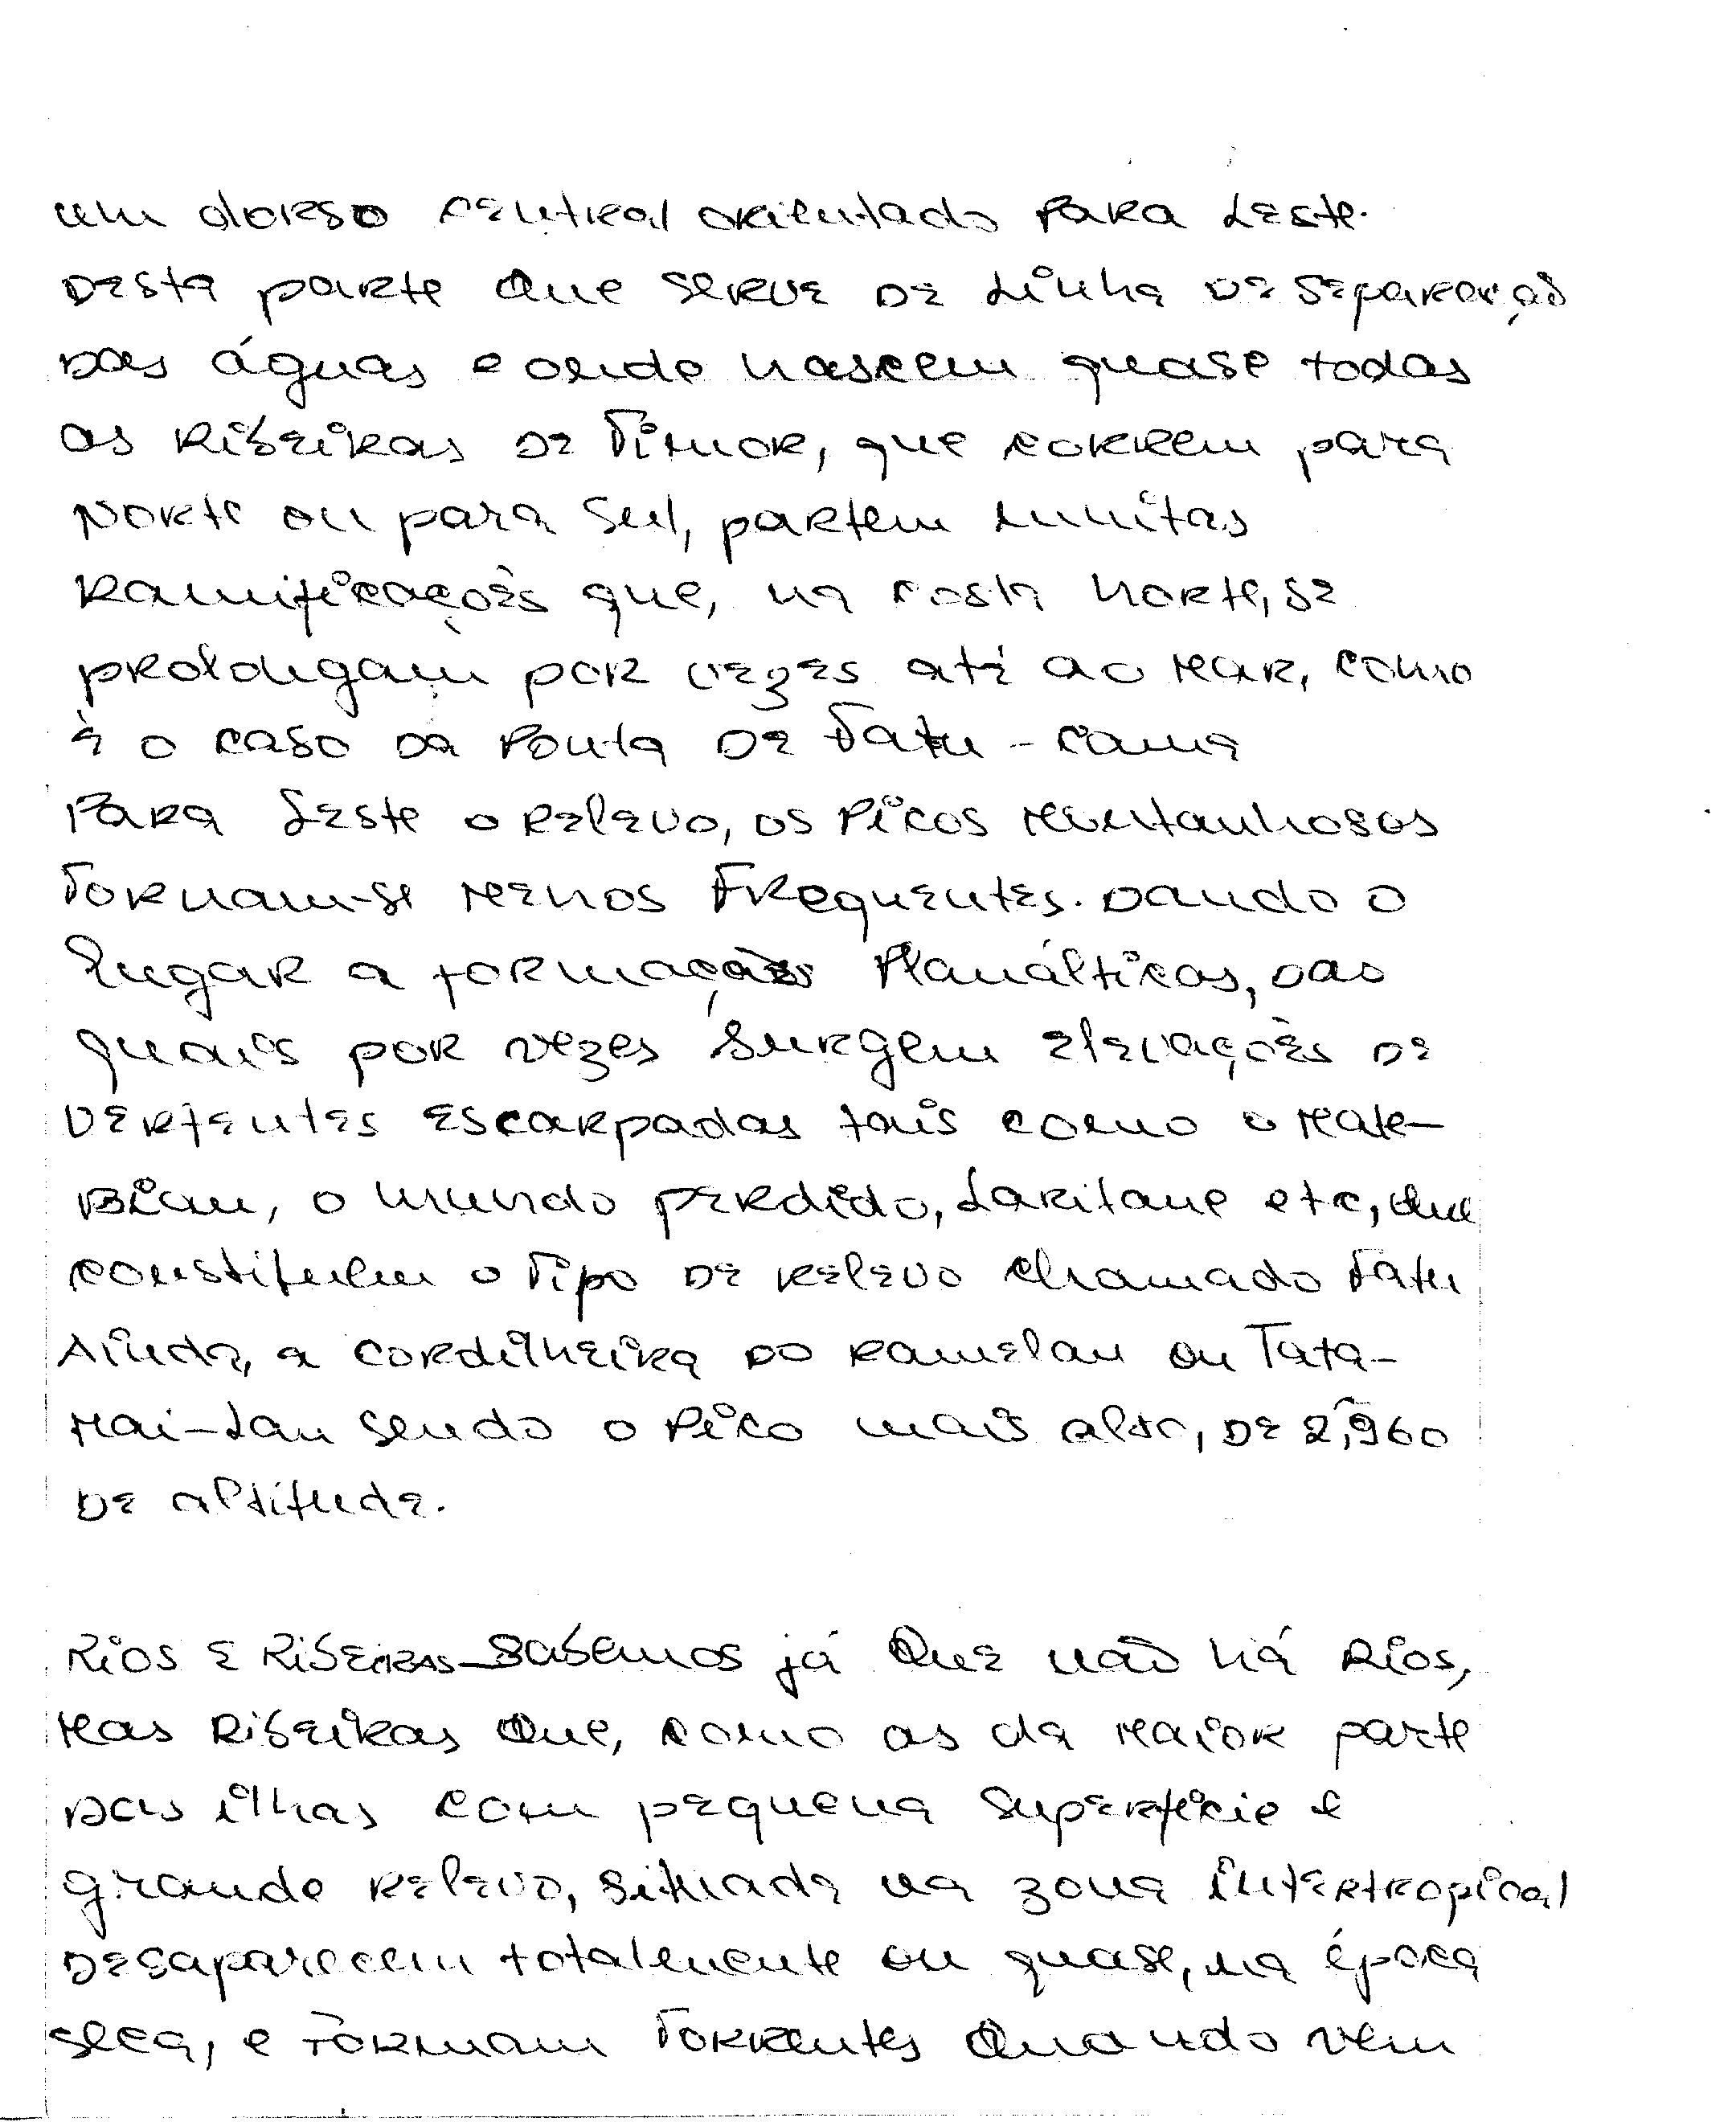 um dorso central orientado para Leste.
Desta parte que serve de linha de separação
das águas e onde nascem quase todas
as Ribeiras de Timor, que correm para
Norte ou para Sul, partem muitas
Ramificações que, na costa norte, se
prolongam por vezes até ao mar, como
é o caso da Ponta de Fatu-cama
Para Leste o relevo, os Picos montanhosos
Tornam-se menos Frequentes. Dando o
lugar a formações Planálticas, das
quais por vezes surgem elevações de
vertentes escarpadas tais como o mate-
Bian, o mundo perdido, Laritame etc, que
constituem o Tipo de relevo chamado Fatu
Ainda, a cordilheira do Ramelau ou Tata-
Mai-Lau sendo o Pico mais alto, de 2,960
de altitude.
Rios e Ribeiras - Sabemos já Que não há Rios,
mas Ribeiras Que, como as da maior parte
das ilhas com pequena superfície e
grande relevo, situada na zona intertropical
desaparecem totalmente ou quase, na época
seca, e Formam Torrentes Quando vem